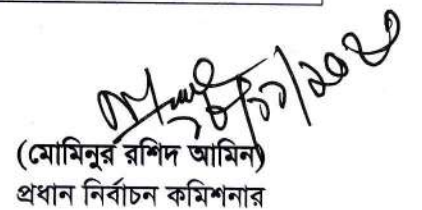 (মোমিনুর রশিদ আমিন)
প্রধান নির্বাচন কমিশনার